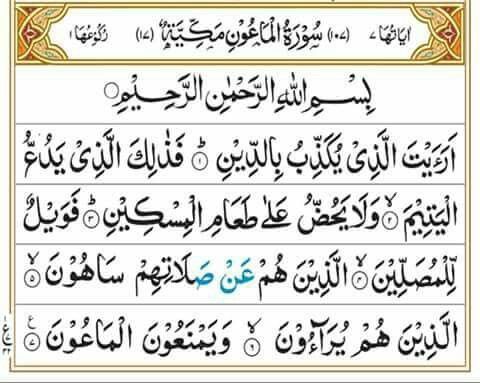 اٰیَاتُهَا ٧ (١٠٧) سُوْرَةُ الْمَاعُوْنِ مَكِّیَّةٌ (١٧) رُكُوْعُهَا ١
بِسْمِ اللهِ الرَّحْمٰنِ الرَّحِیْمِ
اَرَءَیْتَ الَّذِیْ یُكَذِّبُ بِالدِّیْنِ ؕ ١ فَذٰلِكَ الَّذِیْ یَدُعُّ
الْیَتِیْمَ ۙ ٢ وَلَا یَحُضُّ عَلٰی طَعَامِ الْمِسْكِیْنِ ؕ ٣ فَوَیْلٌ
لِّلْمُصَلِّیْنَ ۙ ٤ الَّذِیْنَ هُمْ عَنْ صَلَاتِهِمْ سَاهُوْنَ ۙ ٥
الَّذِیْنَ هُمْ یُرَآءُوْنَ ۙ ٦ وَیَمْنَعُوْنَ الْمَاعُوْنَ ٧